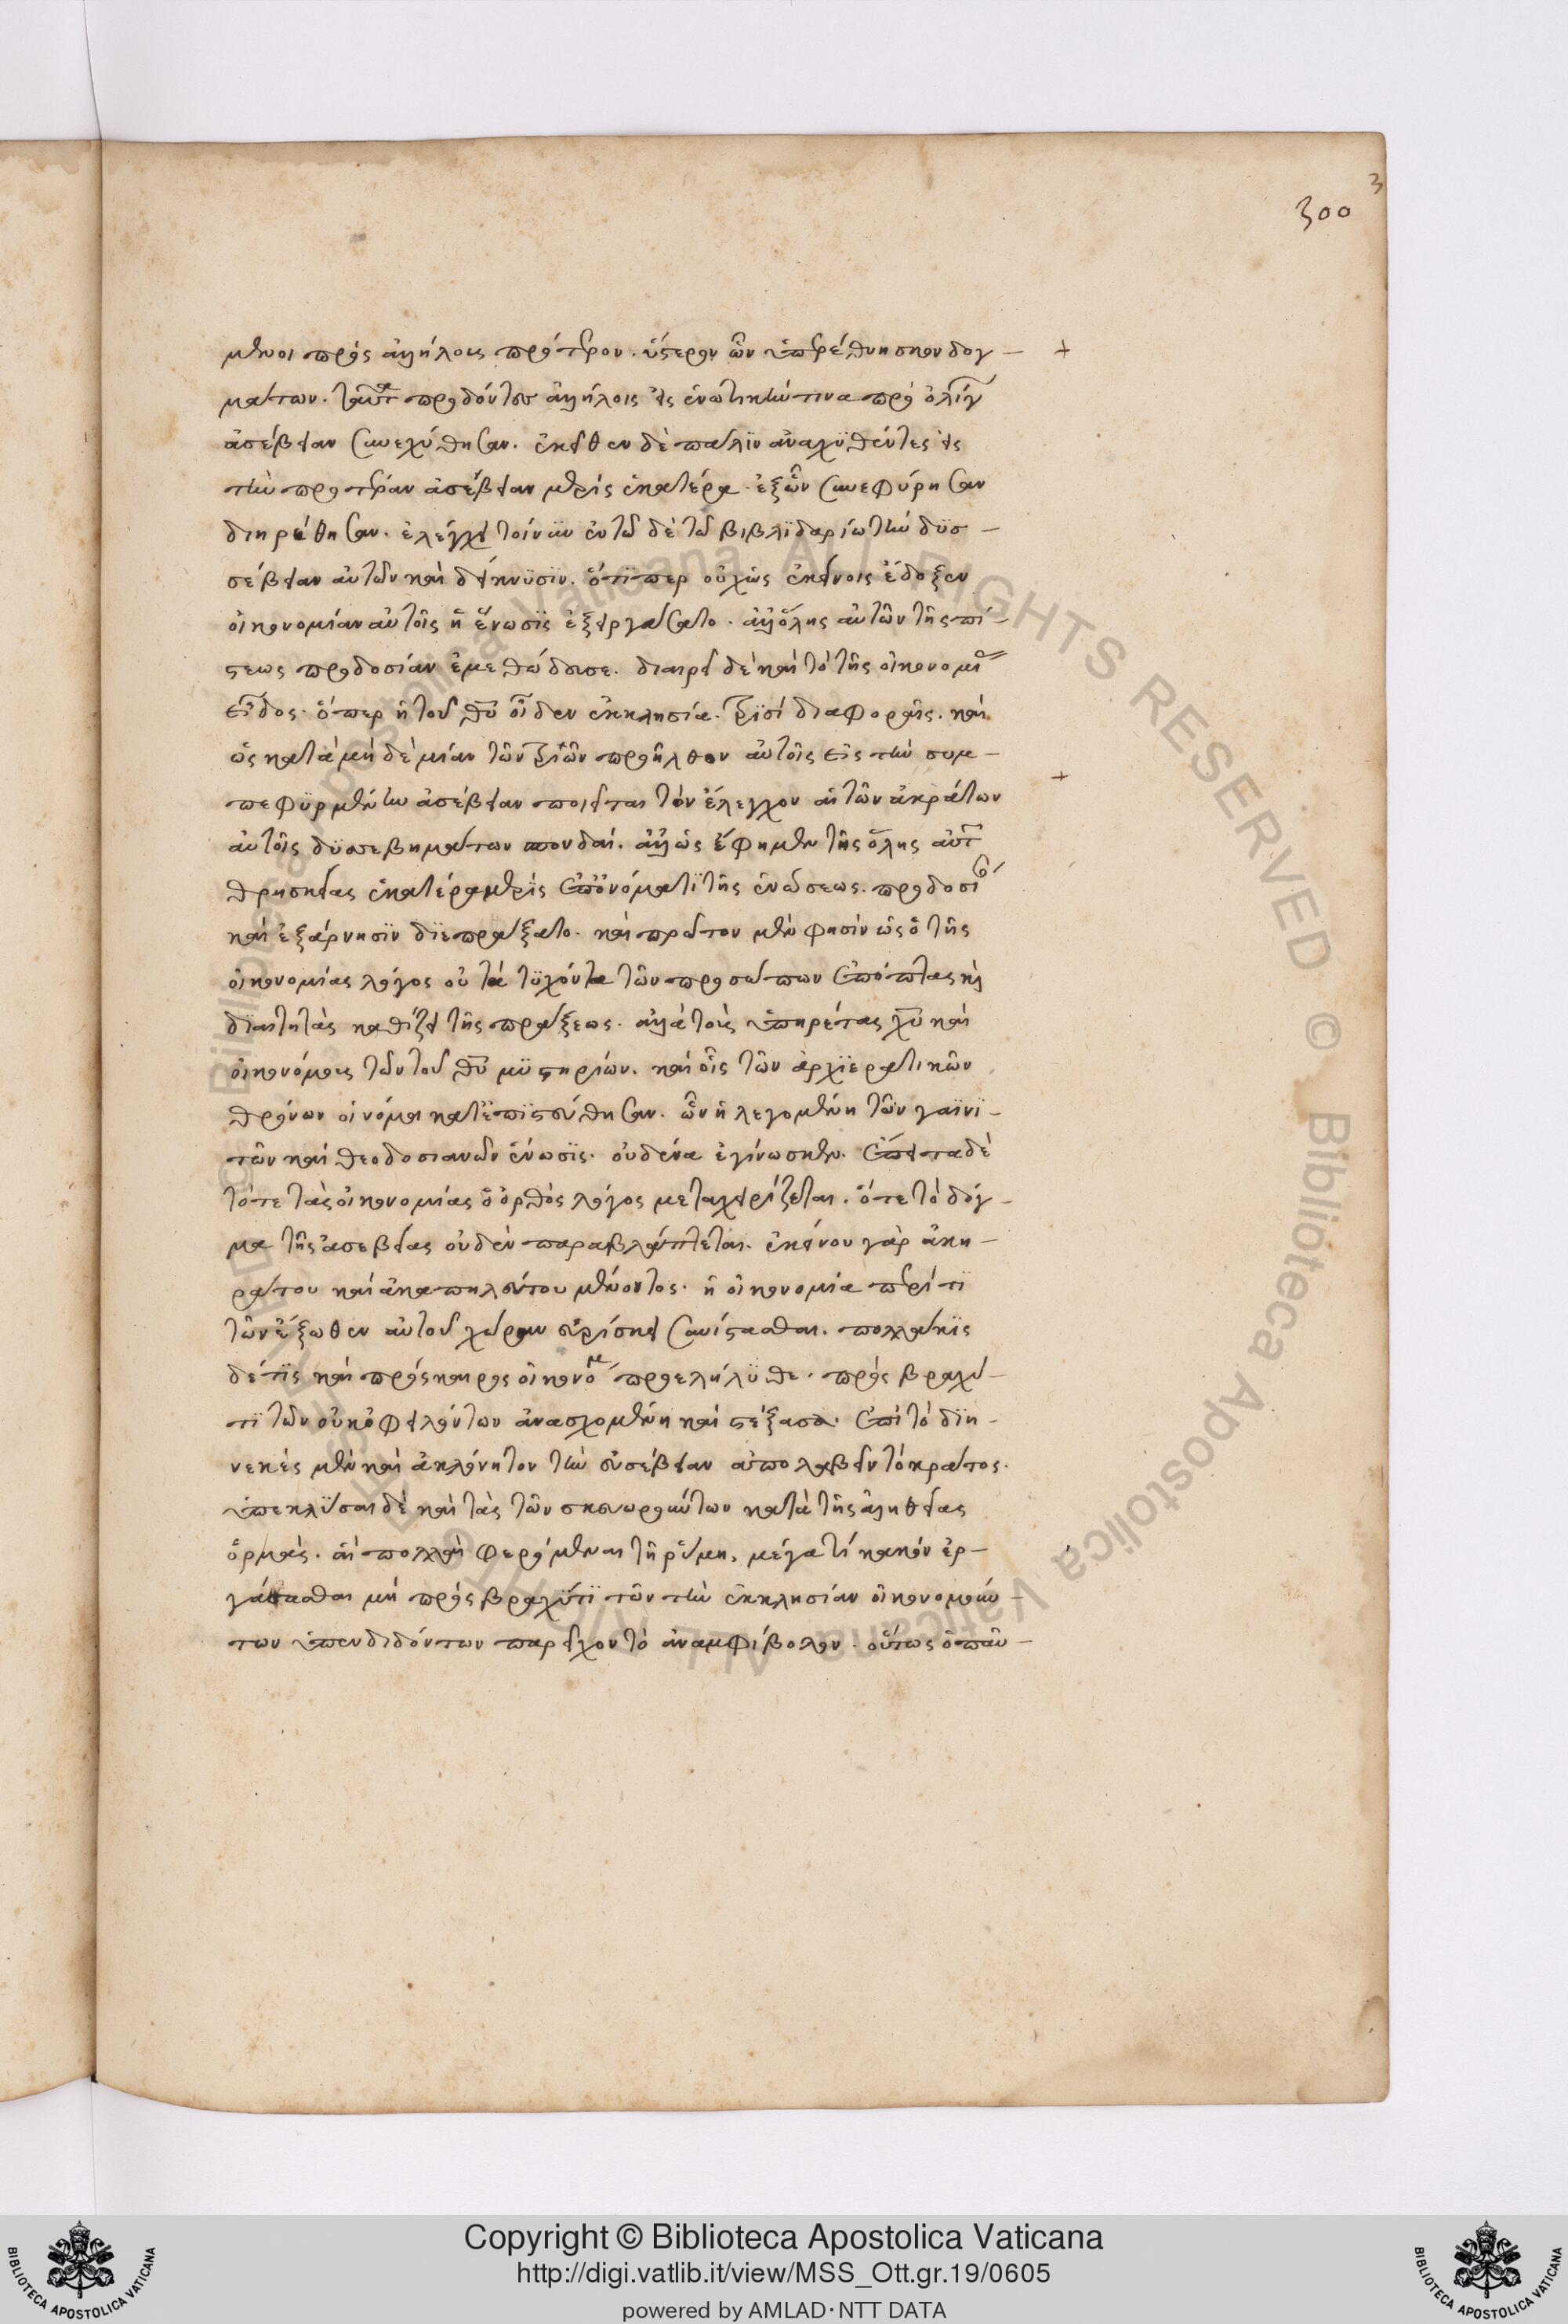 300
3
μενοι πρὸς ἀλλήλους πρότερον. ὕστερον ὧν ὑπερέθνησκον δογ-
μάτων. ταῦτα προδόντες ἀλλήλοις εἰς ἑνωτικήν τινα πρὸς ὀλίγ
ἀσέβειαν συνελύθησαν. ἐκεῖθεν δὲ πάλιν ἀναλυθέντες εἰς
τὴν προτέραν ἀσέβειαν μερὶς ἑκατέρα. ἐξ ὧν συνεφύρησαν
διηρέθησαν. ἐλέγχει τοίνυν ἐν τῶδε τῶ βιβλιδαρίω τὴν δυσ-
σέβειαν αὐτῶν καὶ δείκνυσιν. ὅτι περ οὐχ ὡς ἐκείνοις ἔδοξεν
οἰκονομίαν αὐτοῖς ἡ ἕνωσις ἐξειργάσατο. ἀλλ' ὅλης αὐτῶν τῆς πί-
στεως προδοσίαν ἐμεθώδευσε. διαιρεῖ δὲ καὶ τὸ τῆς οἰκονομίας
εἶδος. ὅπερ ἡ τοῦ θυ οἶδεν ἐκκλησία. τρισὶ διαφοραῖς. καὶ
ὡς κατὰ μηδεμίαν τῶν τριῶν προῆλθον αὐτοῖς εἰς τὴν συμ-
πεφυρμένην ἀσέβειαν ποιεῖται τὸν ἔλεγχον αἱ τῶν ἀκράτων
αὐτοῖς δυσσεβημάτων σπονδαί. ἀλλ' ὡς ἔφημεν τῆς ὅλης αὐτ
θρησκείας ἑκατέρα μερὶς ἐπ' ὀνόματι τῆς ἑνώσεως. προδοσίαν
καὶ ἐξάρνησιν διεπράξατο. καὶ πρῶτον μέν φησιν ὡς ὁ τῆς
οἰκονομίας λόγος οὐ τὰ τυχόντα τῶν προσώπων ἐπόπτας κὶ
διαιτητὰς καθίζει τῆς πράξεως. ἀλλὰ τοὺς ὑπηρέτας χυ καὶ
οἰκονόμους τῶν τοῦ θυ μυστηρίων. καὶ οἷς τῶν ἀρχιερατικῶν
θρόνων οἱ νόμοι κατεπιστεύθησαν. ὧν ἡ λεγομένη τῶν γαϊνι-
τῶν καὶ θεοδοσιανῶν ἕνωσις. οὐδένα ἐγίνωσκεν. ἔπειτα δὲ
τότε τὰς οἰκονομίας ὁ ὀρθὸς λόγος μεταχειρίζεται. ὅτε τὸ δόγ-
μα τῆς εὐσεβείας οὐδὲν παραβλάπτεται. ἐκείνου γὰρ ἀκη-
ράτου καὶ ἀκαπηλεύτου μένοντος. ἡ οἰκονομία περί τι
τῶν ἔξωθεν αὐτοῦ χώραν εὑρίσκει συνίστασθαι. πολλάκις
δέ τις καὶ πρόσκαιρος οἰκονομ προελήλυθε. πρὸς βραχύ-
τι τῶν οὐκ ὀφειλόντων ἀνασχομένη καὶ στέξασα. ἐπὶ τὸ διη-
νεκὲς μὲν καὶ ἀκλόνητον τὴν εὐσέβειαν ἀπολαβεῖν τὸ κράτος.
ὑπεκλῦσαι δὲ καὶ τὰς τῶν σκευωρούντων κατὰ τῆς ἀληθείας
ὁρμάς. αἳ πολλῆ φερόμεναι τῆ ῥύμη, μέγα τί κακὸν ἐρ-
γάσασθαι μὴ πρὸς βραχύ τι τῶν τὴν ἐκκλησίαν οἰκονομούν-
των ὑπενδιδόντων παρεῖχον τὸ ἀναμφίβολον. οὕτως ὁ παυ-
Copyright © Biblioteca Apostolica Vaticana
http://digi.vatlib.it/view/MSS_Ott.gr.19/0605
powered by AMLAD·NTT DATA